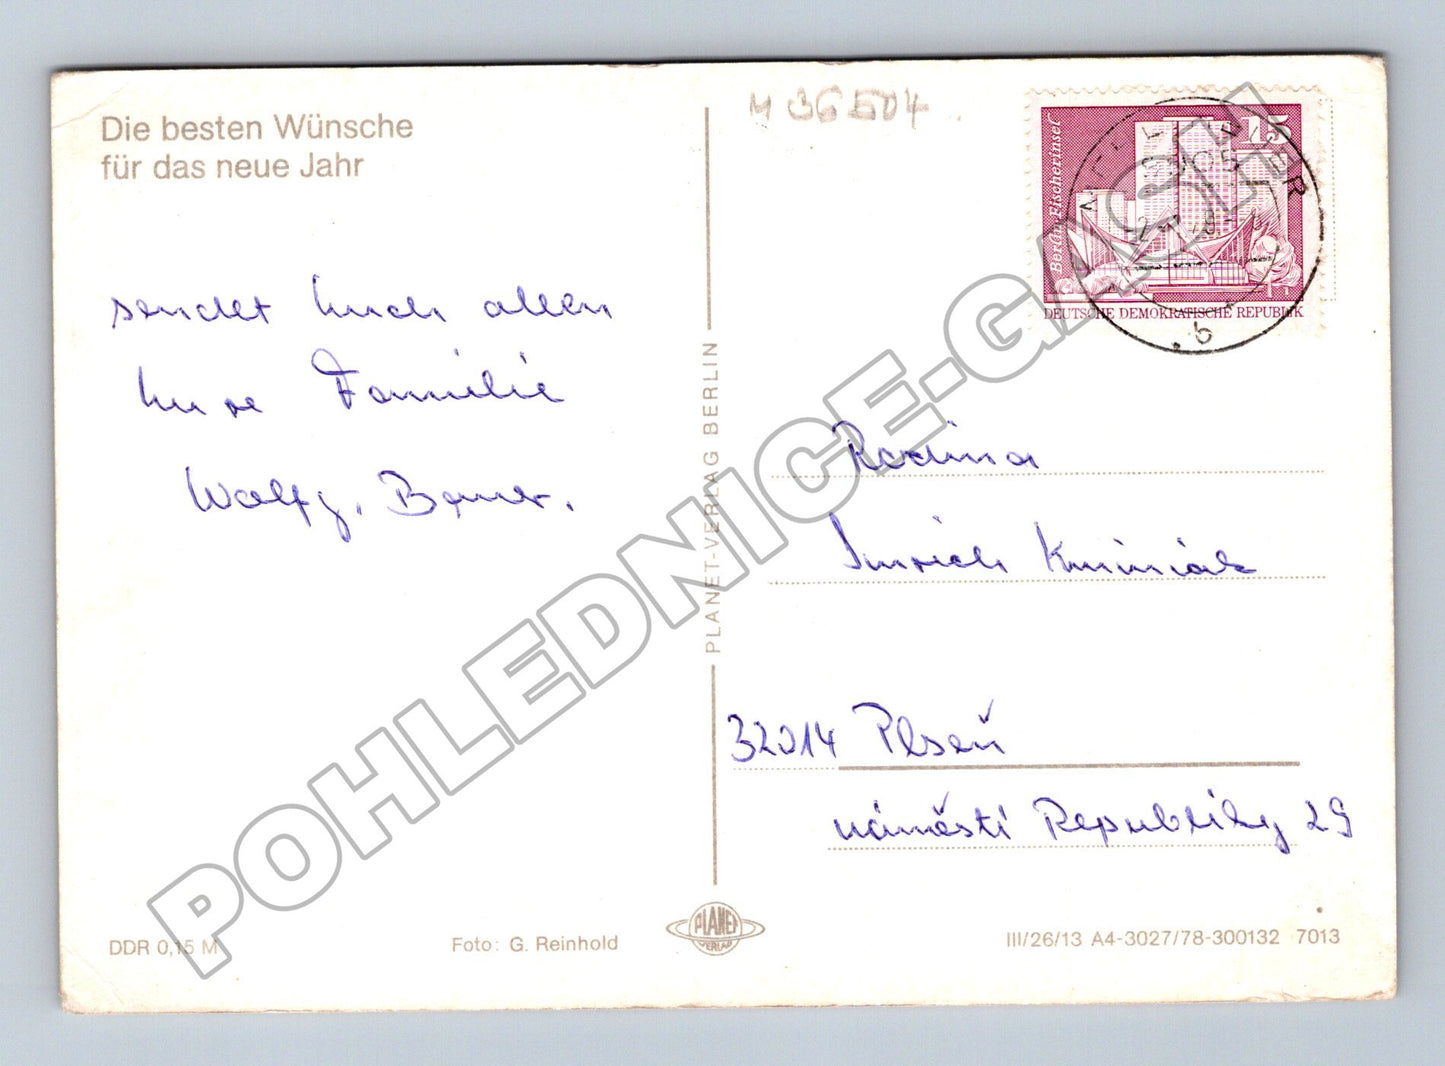 Die besten Wünsche
für das neue Jahr
sendet Euch allen
Eure Familie
Wolfg. Bauer.
PLANET-VERLAG BERLIN
M 36504
15
Berlin-Fischerinsel
DEUTSCHE DEMOKRATISCHE REPUBLIK
b
Rodina
32014 Plseň
náměstí Republiky 29
DDR 0,15 M
Foto: G. Reinhold
PLANET
VERLAG
III/26/13 A4-3027/78-300132 7013
POHLEDNICE-GASH